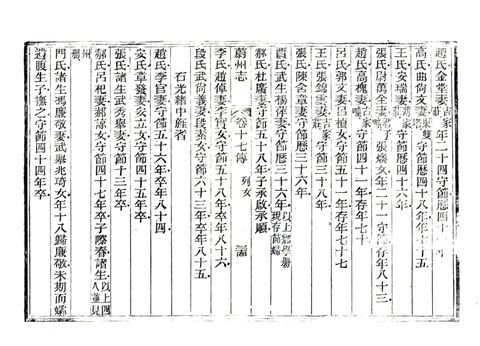 趙氏金堂妻年二十四守節歷四十
高氏曲尚文妻守節歷四十八年
王氏安瑞妻守節歷四十六年
趙氏高槐妻守節年存年七十七
尉氏萬全妻張煥女年二十一守節存年八十三
張氏張錦雲妻守節
呂氏郭文妻呂植女守節五十一年存年七十七
張氏陳舍章妻守節歷三十六年
賈氏武生楊萍妻守節歷三十六年以上鄉學冊現存節婦
郝氏杜廣妻守節五十八年子承啟承順
蔚州志 卷十七傳 列女
李氏趙偉妻李貫女守節六十一年卒年八十六
段氏武尚義妻段素女守節六十三年卒年八十五
右光緒中旌者
趙氏李官妻守節五十六年卒年八十四
安氏章發妻安立女守節四十五年卒
張氏諸生武秀舉妻守節十三年卒
郝氏呂杞妻郝諒女守節四十七年卒子際春諸生以上四人並見州冊
門氏諸生馮廉敬妻武舉兆琦女年十八歸廉敬未期而孀
遺腹生子撫之守節四十四年卒